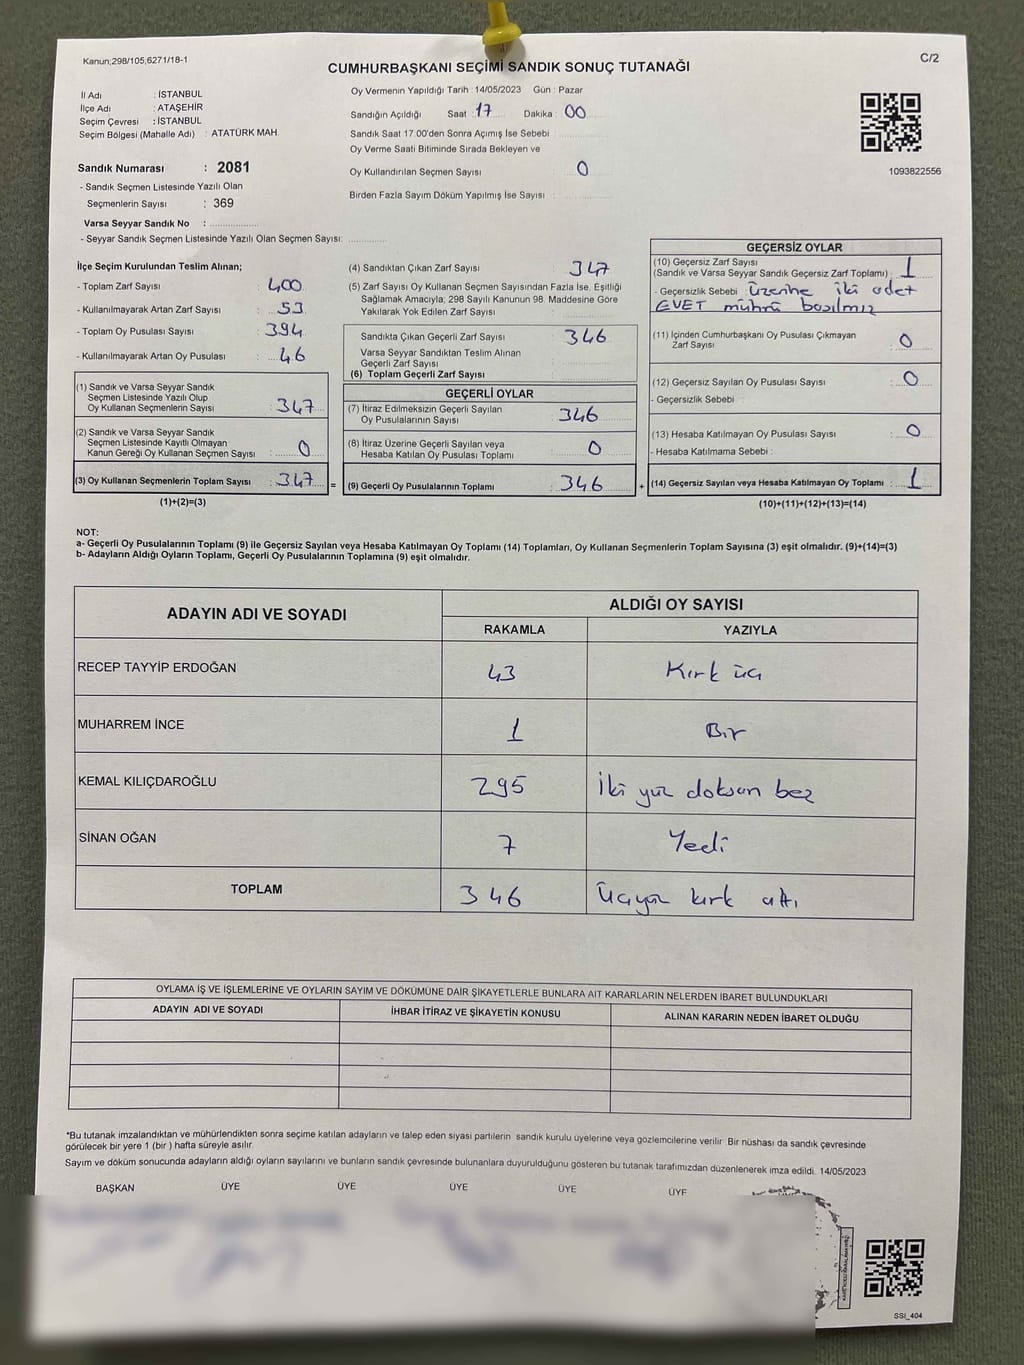 Kanun;298/105,6271/18-1
C/2
CUMHURBAŞKANI SEÇİMİ SANDIK SONUÇ TUTANAĞI
İl Adı : İSTANBUL
İlçe Adı : ATAŞEHİR
Seçim Çevresi : İSTANBUL
Seçim Bölgesi (Mahalle Adı) : ATATÜRK MAH.
Sandık Numarası : 2081
- Sandık Seçmen Listesinde Yazılı Olan
Seçmenlerin Sayısı : 369
Varsa Seyyar Sandık No :
- Seyyar Sandık Seçmen Listesinde Yazılı Olan Seçmen Sayısı:
Oy Vermenin Yapıldığı Tarih : 14/05/2023 Gün : Pazar
Sandığın Açıldığı Saat : 17 Dakika : 00
Sandık Saat 17.00'den Sonra Açımış İse Sebebi :
Oy Verme Saati Bitiminde Sırada Bekleyen ve
Oy Kullandırılan Seçmen Sayısı : 0
Birden Fazla Sayım Döküm Yapılmış İse Sayısı :
1093822556
İlçe Seçim Kurulundan Teslim Alınan;
- Toplam Zarf Sayısı : 400
- Kullanılmayarak Artan Zarf Sayısı : 53
- Toplam Oy Pusulası Sayısı : 394
- Kullanılmayarak Artan Oy Pusulası : 46
(1) Sandık ve Varsa Seyyar Sandık
Seçmen Listesinde Yazılı Olup
Oy Kullanan Seçmenlerin Sayısı : 347
(2) Sandık ve Varsa Seyyar Sandık
Seçmen Listesinde Kayıtlı Olmayan
Kanun Gereği Oy Kullanan Seçmen Sayısı : 0
(3) Oy Kullanan Seçmenlerin Toplam Sayısı : 347 =
(1)+(2)=(3)
(4) Sandıktan Çıkan Zarf Sayısı : 347
(5) Zarf Sayısı Oy Kullanan Seçmen Sayısından Fazla İse, Eşitliği
Sağlamak Amacıyla; 298 Sayılı Kanunun 98. Maddesine Göre
Yakılarak Yok Edilen Zarf Sayısı :
Sandıkta Çıkan Geçerli Zarf Sayısı : 346
Varsa Seyyar Sandıktan Teslim Alınan
Geçerli Zarf Sayısı :
(6) Toplam Geçerli Zarf Sayısı :
GEÇERLİ OYLAR
(7) İtiraz Edilmeksizin Geçerli Sayılan
Oy Pusulalarının Sayısı : 346
(8) İtiraz Üzerine Geçerli Sayılan veya
Hesaba Katılan Oy Pusulası Toplamı : 0
(9) Geçerli Oy Pusulalarının Toplamı : 346 +
GEÇERSİZ OYLAR
(10) Geçersiz Zarf Sayısı
(Sandık ve Varsa Seyyar Sandık Geçersiz Zarf Toplamı) : 1
- Geçersizlik Sebebi : Üzerine iki adet
EVET mührü basılmız
(11) İçinden Cumhurbaşkanı Oy Pusulası Çıkmayan
Zarf Sayısı : 0
(12) Geçersiz Sayılan Oy Pusulası Sayısı : 0
- Geçersizlik Sebebi :
(13) Hesaba Katılmayan Oy Pusulası Sayısı : 0
- Hesaba Katılmama Sebebi :
(14) Geçersiz Sayılan veya Hesaba Katılmayan Oy Toplamı : 1
(10)+(11)+(12)+(13)=(14)
NOT:
a- Geçerli Oy Pusulalarının Toplamı (9) ile Geçersiz Sayılan veya Hesaba Katılmayan Oy Toplamı (14) Toplamları, Oy Kullanan Seçmenlerin Toplam Sayısına (3) eşit olmalıdır. (9)+(14)=(3)
b- Adayların Aldığı Oyların Toplamı, Geçerli Oy Pusulalarının Toplamına (9) eşit olmalıdır.
ADAYIN ADI VE SOYADI
ALDIĞI OY SAYISI
RAKAMLA YAZIYLA
RECEP TAYYİP ERDOĞAN 43 Kırk üç
MUHARREM İNCE 1 Bir
KEMAL KILIÇDAROĞLU 295 İki yüz doksan beş
SİNAN OĞAN 7 Yedi
TOPLAM 346 Üçyüz kırk altı
OYLAMA İŞ VE İŞLEMLERİNE VE OYLARIN SAYIM VE DÖKÜMÜNE DAİR ŞİKAYETLERLE BUNLARA AİT KARARLARIN NELERDEN İBARET BULUNDUKLARI
ADAYIN ADI VE SOYADI İHBAR İTİRAZ VE ŞİKAYETİN KONUSU ALINAN KARARIN NEDEN İBARET OLDUĞU
*Bu tutanak imzalandıktan ve mühürlendikten sonra seçime katılan adayların ve talep eden siyasi partilerin sandık kurulu üyelerine veya gözlemcilerine verilir. Bir nüshası da sandık çevresinde
görülecek bir yere 1 (bir ) hafta süreyle asılır.
Sayım ve döküm sonucunda adayların aldığı oyların sayılarını ve bunların sandık çevresinde bulunanlara duyurulduğunu gösteren bu tutanak tarafımızdan düzenlenerek imza edildi. 14/05/2023
BAŞKAN ÜYE ÜYE ÜYE ÜYE ÜYE
SSI_404